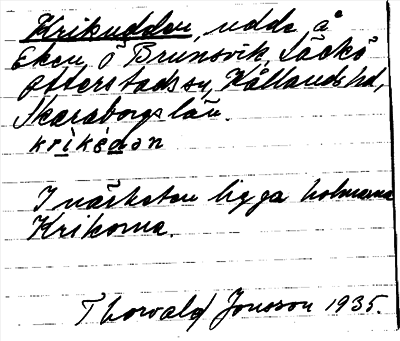 Krikudden, udde å
Eken ö Brunsvik, Läckö
Otterstads sn, Kållands hd,
Skaraborgs län.
krikèdən
I närheten ligga holmarna
Krikorna.
Thorvald Jonsson 1935.